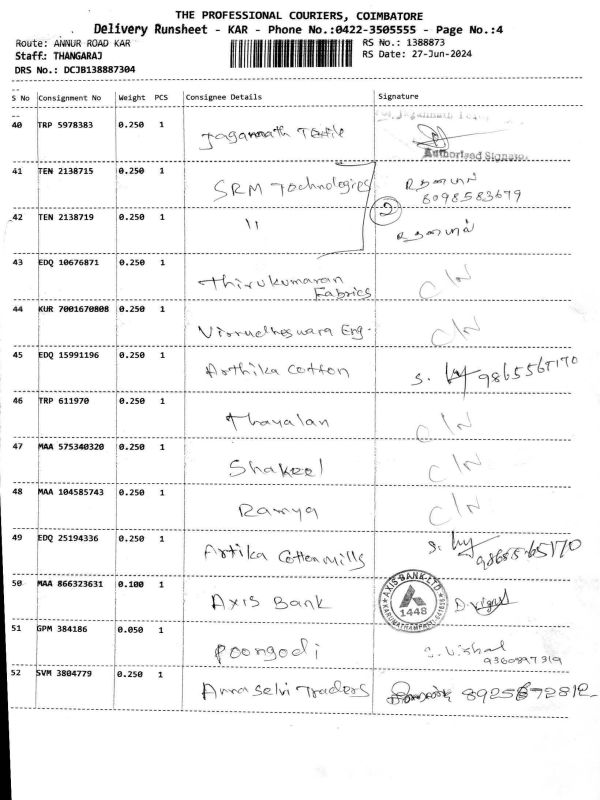 THE PROFESSIONAL COURIERS, COIMBATORE
Delivery Runsheet - KAR - Phone No.:0422-3505555 - Page No.:4
Route: ANNUR ROAD KAR RS No.: 1388873
Staff: THANGARAJ RS Date: 27-Jun-2024
DRS No.: DCJB138887304
S No Consignment No Weight PCS Consignee Details Signature
40 TRP 5978383 0.250 1 Jagannath Textile
Authorised Signato
41 TEN 2138715 0.250 1 SRM Technologies
6098583679
42 TEN 2138719 0.250 1 " 2
43 EDQ 10676871 0.250 1 Thirukumaran Fabrics C/N
44 KUR 7001670808 0.250 1 Eng. C/N
45 EDQ 15991196 0.250 1 Arthika Cotton S.
46 TRP 611970 0.250 1 Thayalan C/N
47 MAA 575340320 0.250 1 Shakeel C/N
48 MAA 104585743 0.250 1 Ramya C/N
49 EDQ 25194336 0.250 1 Artika Cotten mills S.
50 MAA 866323631 0.100 1 Axis Bank AXIS BANK LTD 1448
51 GPM 384186 0.050 1 Poongodi S. Vishal
9360897319
52 SVM 3804779 0.250 1 Annaselvi Traders